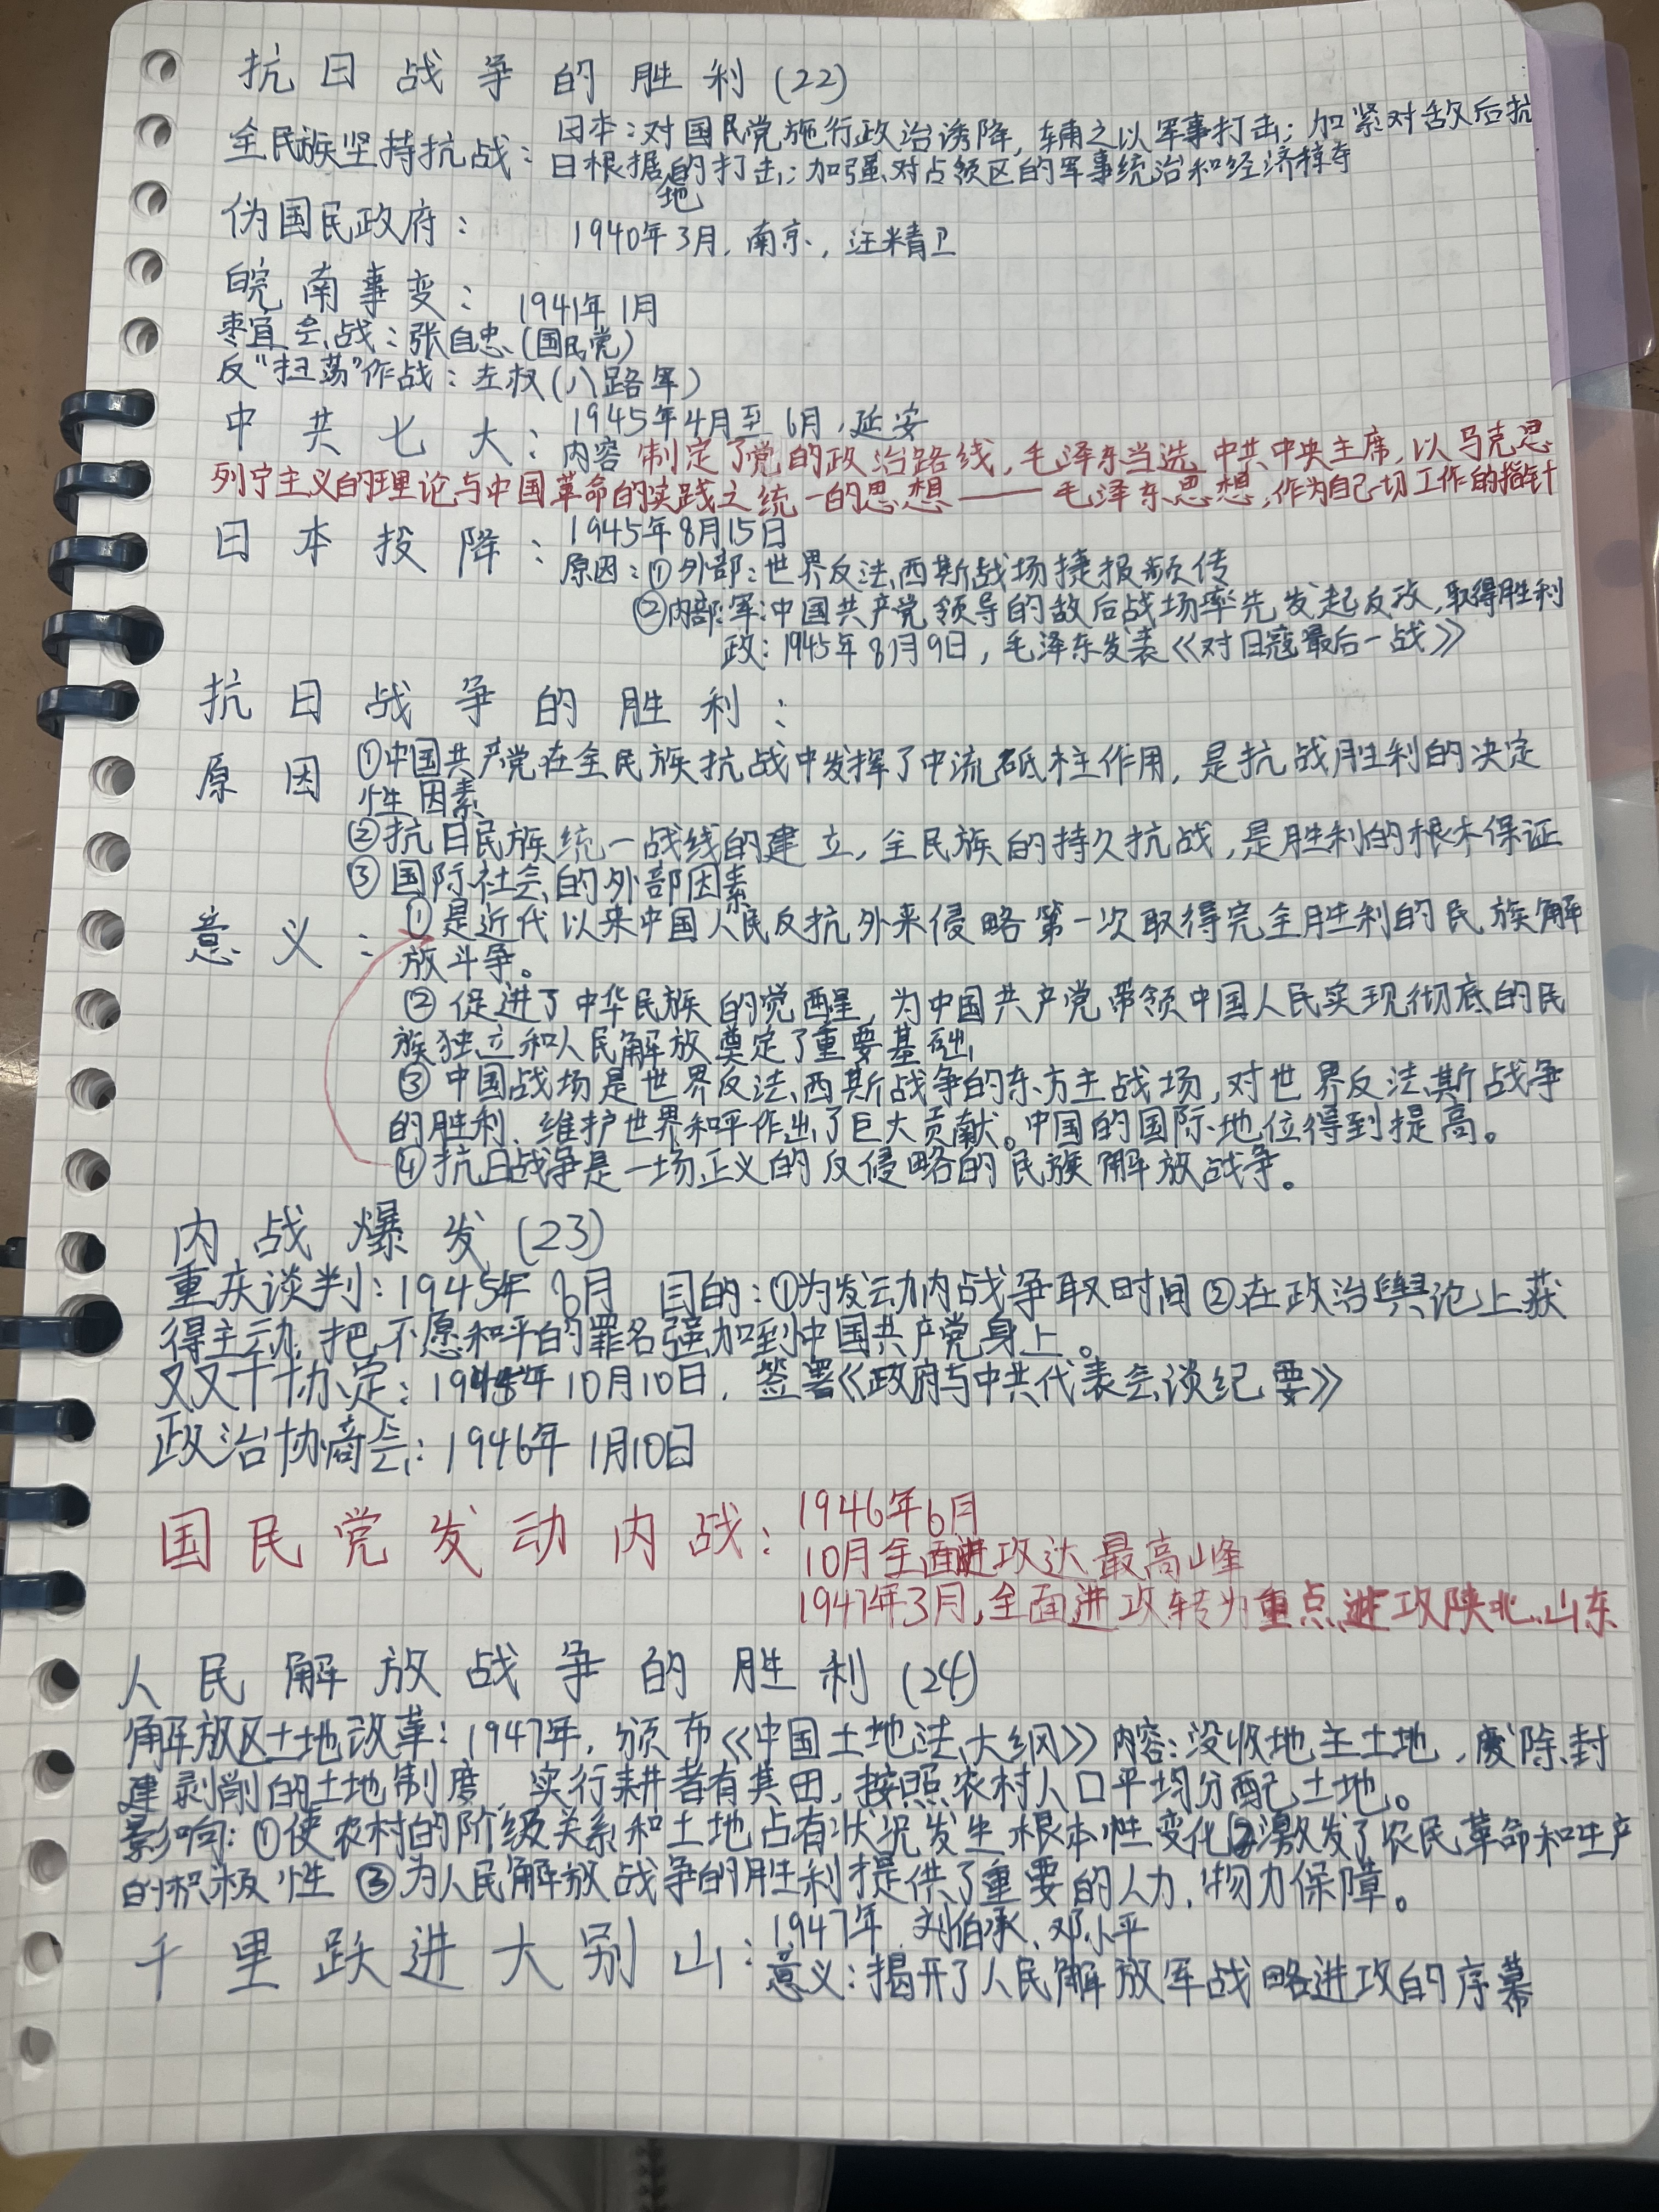 抗日战争的胜利(22)
全民族坚持抗战：日本：对国民党施行政治诱降，辅之以军事打击；加紧对敌后抗
日根据地的打击；加强对占领区的军事统治和经济掠夺
伪国民政府： 1940年3月，南京，汪精卫
皖南事变：1941年1月
枣宜会战：张自忠(国民党)
反"扫荡"作战：左权(八路军)
中共七大：1945年4月至6月，延安
内容 制定了党的政治路线，毛泽东当选中共中央主席，以马克思
列宁主义的理论与中国革命的实践之统一的思想——毛泽东思想，作为自己一切工作的指针
日本投降：1945年8月15日
原因：①外部：世界反法西斯战场捷报频传
②内部：军：中国共产党领导的敌后战场率先发起反攻，取得胜利
政：1945年8月9日，毛泽东发表《对日寇最后一战》
抗日战争的胜利：
原因 ①中国共产党在全民族抗战中发挥了中流砥柱作用，是抗战胜利的决定
性因素
②抗日民族统一战线的建立，全民族的持久抗战，是胜利的根本保证
③国际社会的外部因素
意义：①是近代以来中国人民反抗外来侵略第一次取得完全胜利的民族解
放斗争。
②促进了中华民族的觉醒，为中国共产党带领中国人民实现彻底的民
族独立和人民解放奠定了重要基础
③中国战场是世界反法西斯战争的东方主战场，对世界反法斯战争
的胜利、维护世界和平作出了巨大贡献。中国的国际地位得到提高。
④抗日战争是一场正义的反侵略的民族解放战争。
内战爆发(23)
重庆谈判：1945年8月 目的：①为发动内战争取时间②在政治舆论上获
得主动，把不愿和平的罪名强加到中国共产党身上。
双双十协定：1945年10月10日，签署《政府与中共代表会谈纪要》
政治协商会：1946年1月10日
国民党发动内战：1946年6月
10月全面进攻达最高峰
1947年3月，全面进攻转为重点进攻陕北、山东
人民解放战争的胜利(24)
解放区土地改革：1947年，颁布《中国土地法大纲》内容：没收地主土地，废除封
建剥削的土地制度，实行耕者有其田，按照农村人口平均分配土地。
影响：①使农村的阶级关系和土地占有状况发生根本性变化②激发了农民革命和生产
的积极性 ③为人民解放战争的胜利提供了重要的人力、物力保障。
千里跃进大别山：1947年 刘伯承、邓小平
意义：揭开了人民解放军战略进攻的序幕